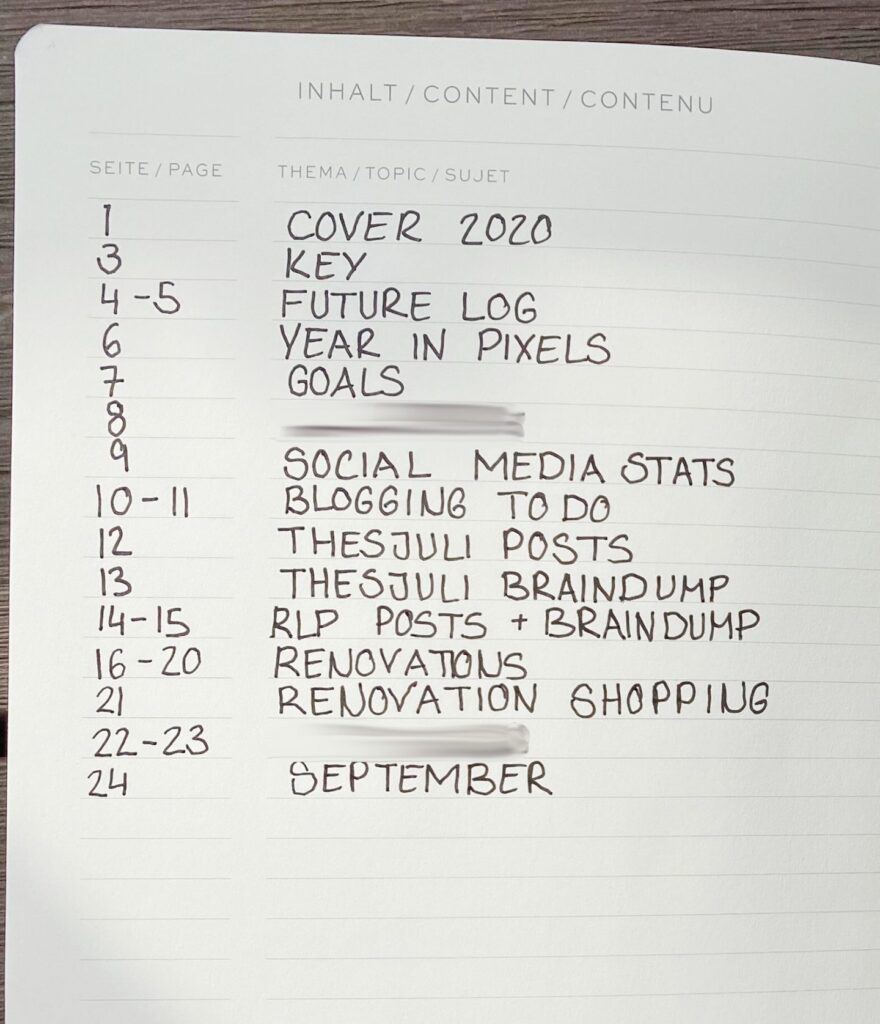 INHALT / CONTENT / CONTENU
SEITE / PAGE THEMA / TOPIC / SUJET
1 COVER 2020
3 KEY
4-5 FUTURE LOG
6 YEAR IN PIXELS
7 GOALS
8
9 SOCIAL MEDIA STATS
10-11 BLOGGING TO DO
12 THESJULI POSTS
13 THESJULI BRAINDUMP
14-15 RLP POSTS + BRAINDUMP
16-20 RENOVATIONS
21 RENOVATION SHOPPING
22-23
24 SEPTEMBER